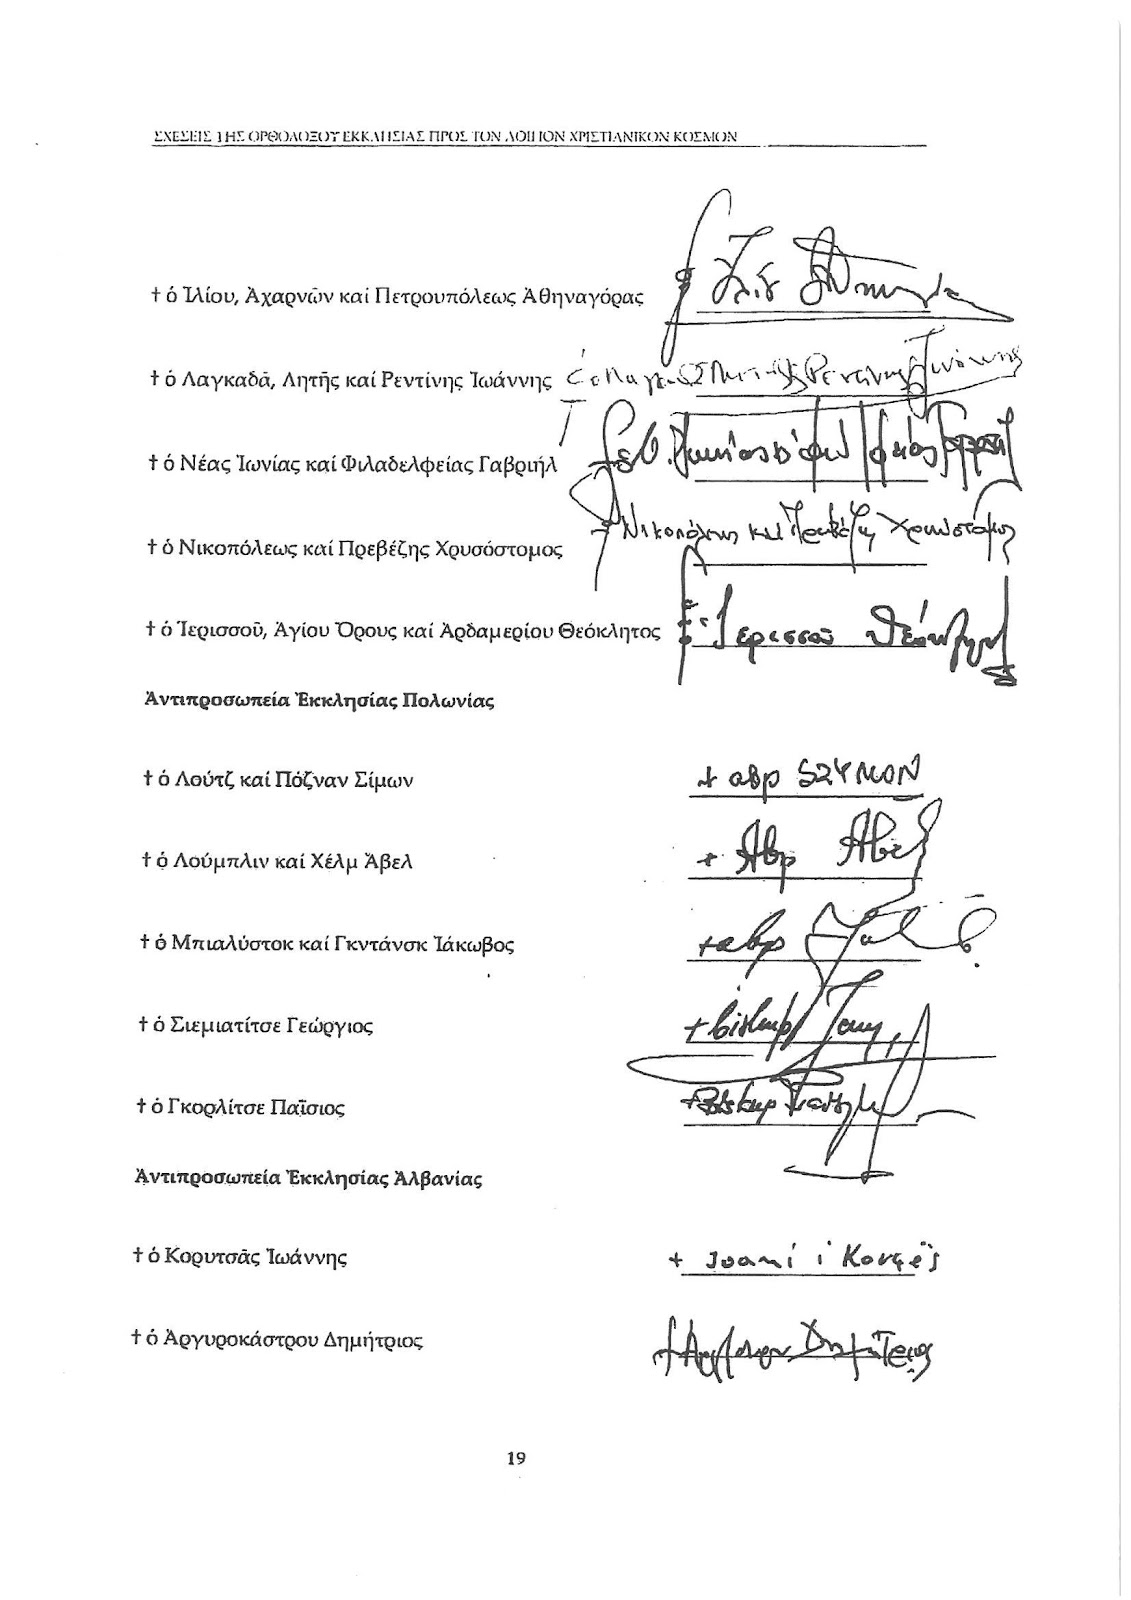 ΣΧΕΣΕΙΣ ΤΗΣ ΟΡΘΟΔΟΞΟΥ ΕΚΚΛΗΣΙΑΣ ΠΡΟΣ ΤΟΝ ΛΟΙΠΟΝ ΧΡΙΣΤΙΑΝΙΚΟΝ ΚΟΣΜΟΝ
† ὁ Ἰλίου, Ἀχαρνῶν καί Πετρουπόλεως Ἀθηναγόρας
† ὁ Λαγκαδᾶ, Λητῆς καί Ρεντίνης Ἰωάννης
† ὁ Νέας Ἰωνίας καί Φιλαδελφείας Γαβριήλ
† ὁ Νικοπόλεως καί Πρεβέζης Χρυσόστομος Νικοπόλεως καί Πρεβέζης Χρυσόστομος
† ὁ Ἱερισσοῦ, Ἁγίου Ὄρους καί Ἀρδαμερίου Θεόκλητος Ἱερισσοῦ Θεόκλητος
Ἀντιπροσωπεία Ἐκκλησίας Πολωνίας
† ὁ Λούτζ καί Πόζναν Σίμων + abp SZYMON
† ὁ Λούμπλιν καί Χέλμ Ἄβελ + Abp Abel
† ὁ Μπιαλύστοκ καί Γκντάνσκ Ἰάκωβος + abp Jakub
† ὁ Σιεμιατίτσε Γεώργιος + biskup
† ὁ Γκορλίτσε Παΐσιος + Biskup
Ἀντιπροσωπεία Ἐκκλησίας Ἀλβανίας
† ὁ Κορυτσᾶς Ἰωάννης + Joani i Korçës
† ὁ Ἀργυροκάστρου Δημήτριος Δημήτριος
19